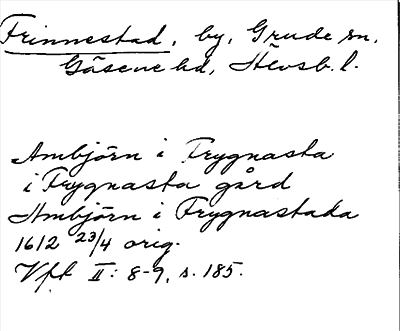 Frinnestad, by, Grude sn,
Gäsene hd, Älvsb. l.
Ambjörn i Frygnasta
i Frygnasta gård
Ambjörn i Frygnastada
1612 23/4 orig.
Vft II: 8-9, s. 185.